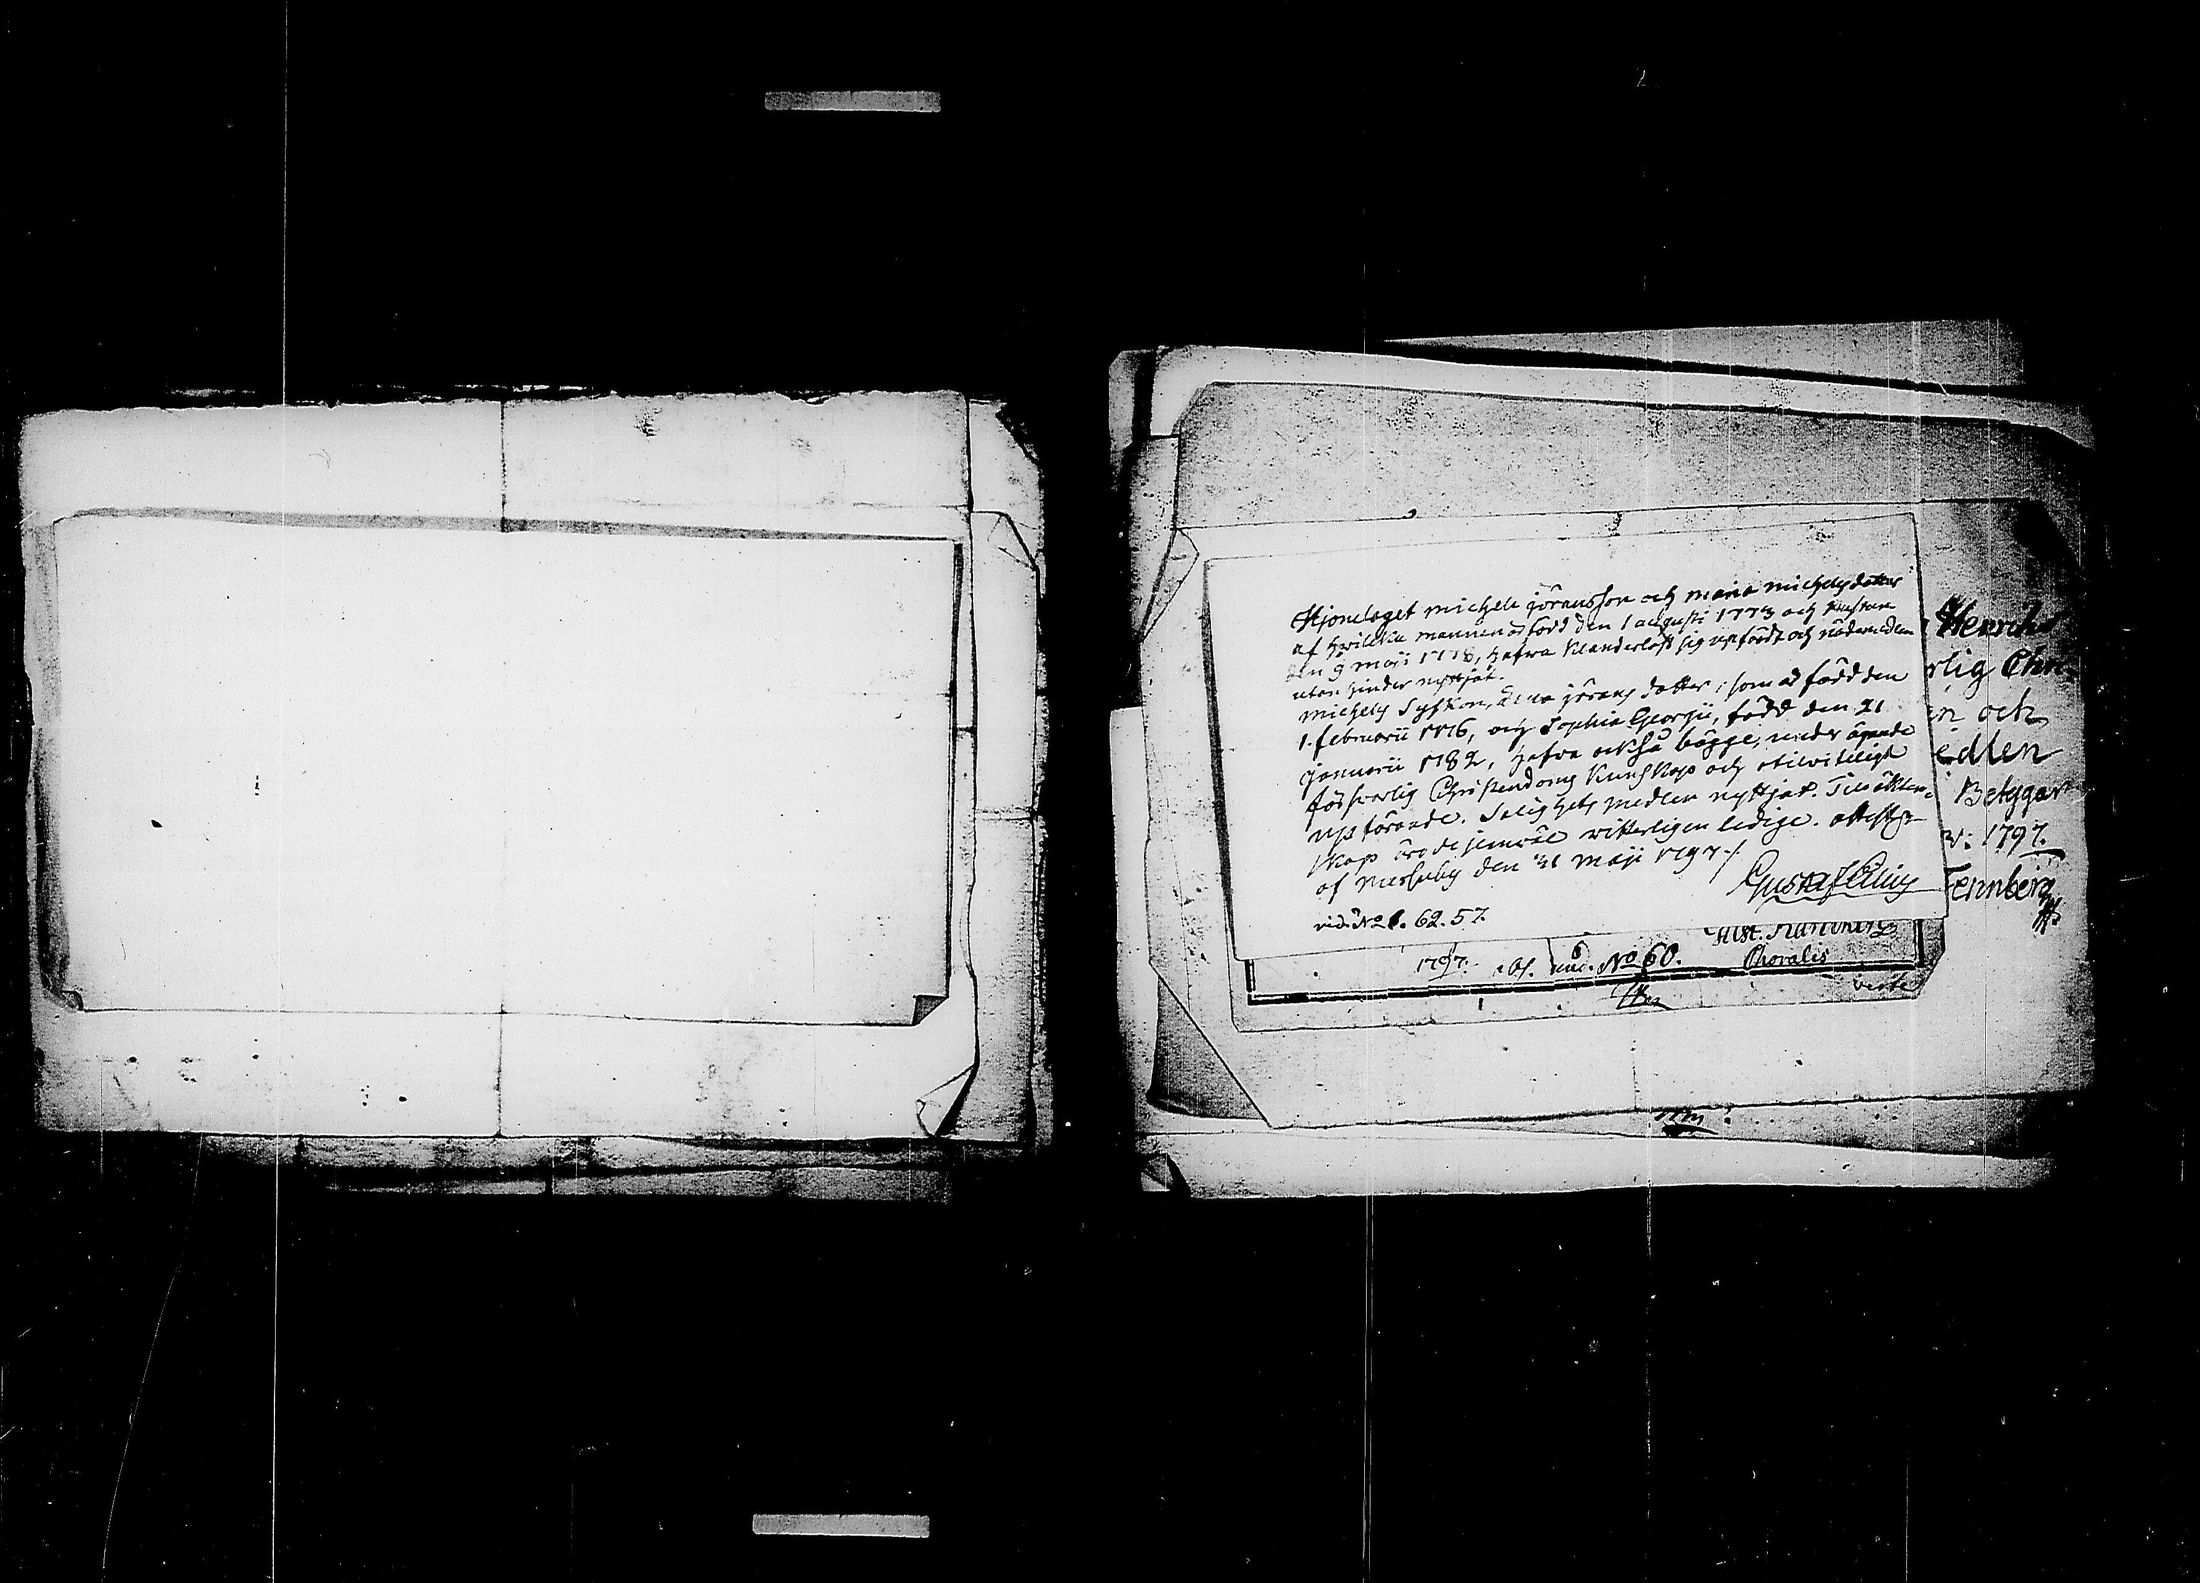 Hjonelaget michels jöransson och maria michelsdotter
af hwilcka mannen är född den 1 augusti 1773 och hustrun
den 9 maji 1778, hafva klanderlöst sig upfördt och nådemedlen
utan hinder nyttjat.
michels Syskon, jörans dotter, som är född den
1. februarii 1776, och Sophia Georgii, född den 21
januarii 1782, hafva också bägge, under ägande
försvarlig Christendoms Kunskap och otilviteligt
upförande. Salighets medlen nyttjat. Til äkten-
skap äro de jemväl witterligen ledige. attest.
af Messuby den 31 maji 1797.
Gustaf
vid. No 1. 62. 57.
1797. No 60.
Choralis
verte
Henrich
rlig Chri
n och
edlen
Betygar
1797.
Tennberg